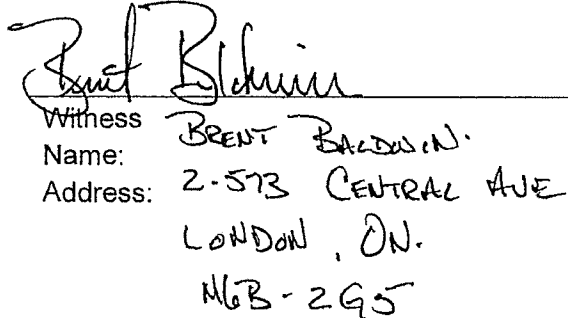 Brent Baldwin
Witness
Name: BRENT BALDWIN.
Address: 2-573 CENTRAL AVE
LONDON, ON.
N6B-2G5